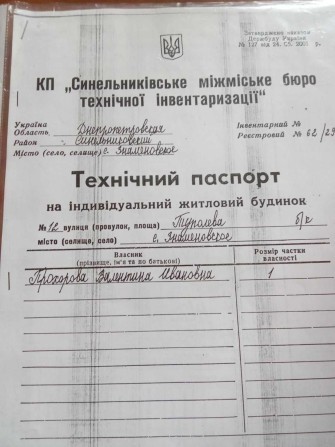 Затверджено наказом
Держбуду України
№ 127 від 24. 05. 2001
КП „Синельниківське міжміське бюро
технічної інвентаризації"
Україна
Область Днепропетровская
Район Синельниковский
Місто (село, селище) с. Знаменовское
Інвентарний №
Реєстровий № 62/29
Технічний паспорт
на індивідуальний житловий будинок
№ 12 вулиця (провулок, площа) Туполева б/к
місто (селище, село) с. Знаменовское
Власник
(прізвище, ім'я та по батькові)
Розмір частки
власності
Прохорова Валентина Ивановна 1